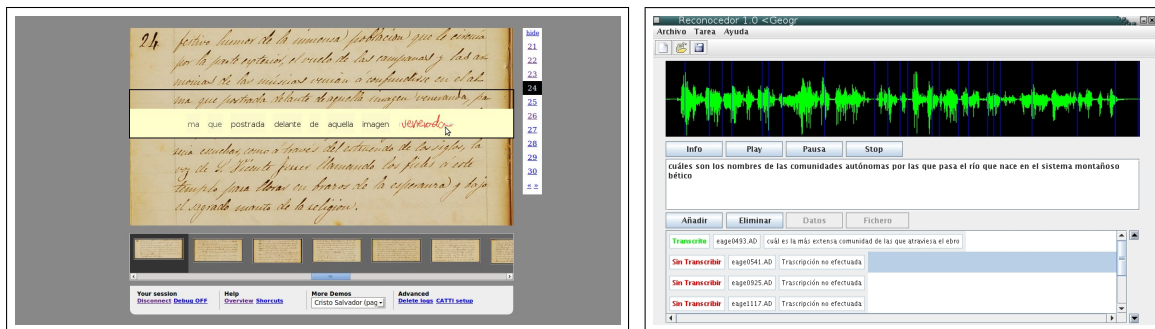 24
festivo humor de la inmensa poblacion que le ceñia
por la parte exterior, el vuelo de las campanas y las ar
monias de las músicas venian á confundirse en el al
ma que postrada delante de aquella imagen veneranda, pa
ma que postrada delante de aquella imagen veneranda
escuchar, como á través del estruendo de los siglos, la
voz de S. Vicente Ferrer llamando los fieles á este
templo para llorar en brazos de la esperanza y bajo
el sagrado manto de la religion.
hide
21
22
23
24
25
26
27
28
29
30
« »
Your session
Disconnect Debug OFF
Help
Overview Shorcuts
More Demos
Cristo Salvador (pag
Advanced
Delete logs CATTI setup
Reconocedor 1.0 <Geogr
Archivo Tarea Ayuda
Info Play Pausa Stop
cuáles son los nombres de las comunidades autónomas por las que pasa el río que nace en el sistema montañoso
bético
Añadir Eliminar Datos Fichero
Transcrito eage0493.AD cuál es la más extensa comunidad de las que atraviesa el ebro
Sin Transcribir eage0541.AD Trascripción no efectuada
Sin Transcribir eage0925.AD Trascripción no efectuada
Sin Transcribir eage1117.AD Trascripción no efectuada